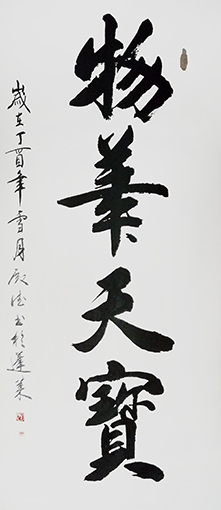 物華天寶
歲在丁酉年雪月顧德書於蓬萊